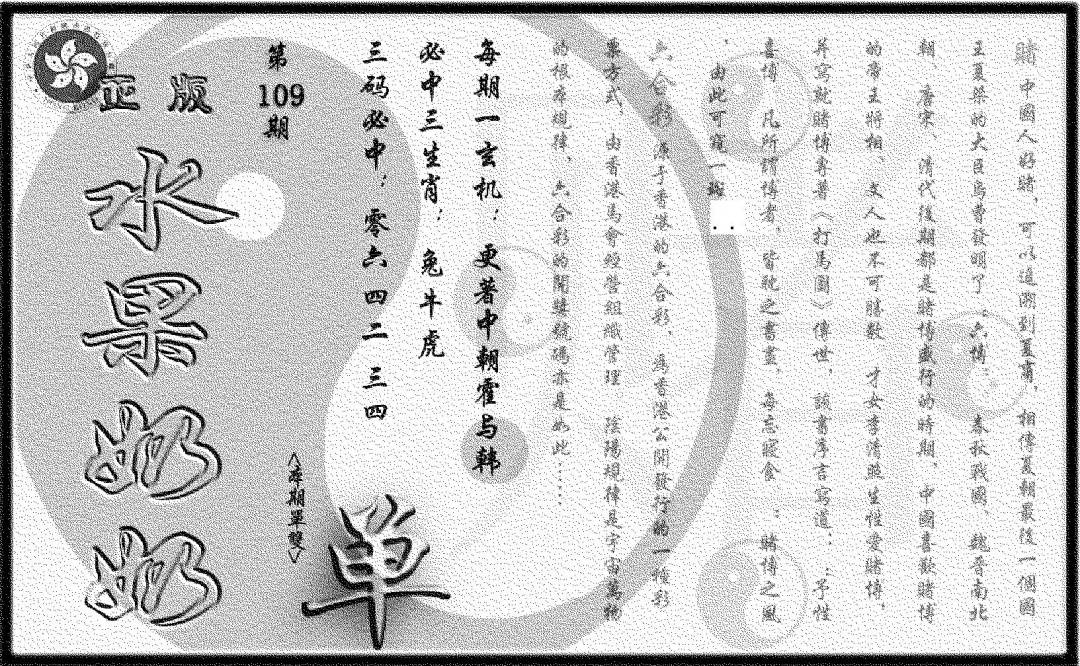 賭中國人好賭，可以追溯到夏商，相傳夏朝最後一個國
王夏桀的大臣烏曹發明了：六博：。春秋戰國、魏晉南北
朝、唐宋、清代後期都是賭博盛行的時期。中國喜歡賭博
的帝王將相、文人也不可勝數 才女李清照生性愛賭博，
并寫就賭博專著《打馬圖》傳世，該書序言寫道：：予性
喜博，凡所謂博者，皆耽之書畫，每忘寢食 ：賭博之風
，由此可窺一斑
六合彩 源于香港的六合彩，為香港公開發行的一種彩
票方式，由香港馬會經營組織管理 陰陽規律是宇宙萬物
的根本規律，六合彩的開獎號碼亦是如此……
每期一玄机：更著中朝霍与韩
必中三生肖：兔牛虎
三码必中：零六四二三四
第
109
期
<本期單雙>
单
正版
水果奶奶